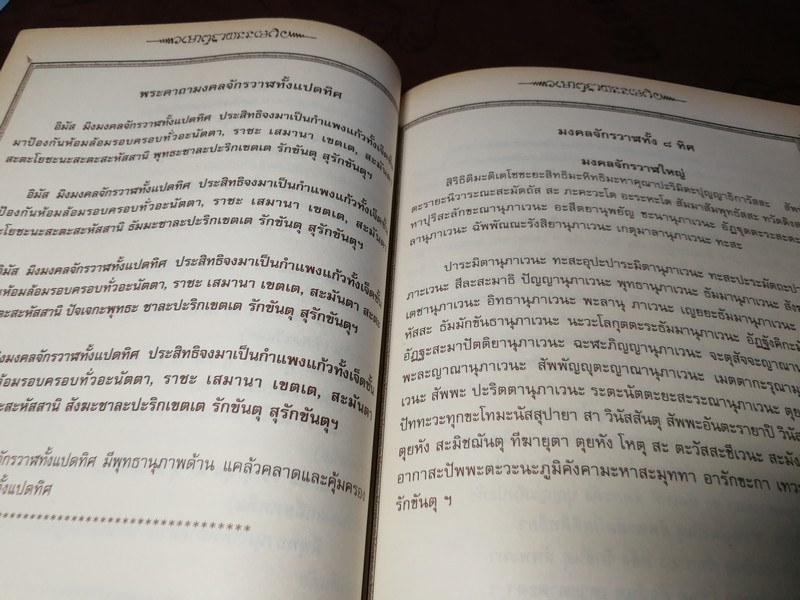 พระคาถามงคลจักรวาฬทั้งแปดทิศ
อิมัส มิงมงคลจักรวาฬทั้งแปดทิศ ประสิทธิจงมาเป็นกำแพงแก้วทั้งเจ็ดชั้น
มาป้องกันห้อมล้อมรอบครอบทั่วอะนัตตา, ราชะ เสมานา เขตเต, สะมันตา
สะตะโยชะนะสะตะสะหัสสานิ พุทธะชาละปะริกเขตเต รักขันตุ สุรักขันตุฯ
อิมัส มิงมงคลจักรวาฬทั้งแปดทิศ ประสิทธิจงมาเป็นกำแพงแก้วทั้งเจ็ดชั้น
ป้องกันห้อมล้อมรอบครอบทั่วอะนัตตา, ราชะ เสมานา เขตเต, สะมันตา
ะโยชะนะสะตะสะหัสสานิ ธัมมะชาละปะริกเขตเต รักขันตุ สุรักขันตุฯ
อิมัส มิงมงคลจักรวาฬทั้งแปดทิศ ประสิทธิจงมาเป็นกำแพงแก้วทั้งเจ็ดชั้น
ันห้อมล้อมรอบครอบทั่วอะนัตตา, ราชะ เสมานา เขตเต, สะมันตา สะตะ
ะสะตะสะหัสสานิ ปัจเจกะพุทธะ ชาละปะริกเขตเต รักขันตุ สุรักขันตุฯ
มิงมงคลจักรวาฬทั้งแปดทิศ ประสิทธิจงมาเป็นกำแพงแก้วทั้งเจ็ดชั้น
้อมล้อมรอบครอบทั่วอะนัตตา, ราชะ เสมานา เขตเต, สะมันตา
ะสะหัสสานิ สังฆะชาละปะริกเขตเต รักขันตุ สุรักขันตุฯ
จักรวาฬทั้งแปดทิศ มีพุทธานุภาพด้าน แคล้วคลาดและคุ้มครอง
ทั้งแปดทิศ
*********************************
มงคลจักรวาฬทั้ง ๘ ทิศ
มงคลจักรวาฬใหญ่
สิริธิติมะติเตโชชะยะสิทธิมะหิทธิมะหาคุณาปะริมิตะปุญญาธิการัสสะ สัพ
ตะรายะนิวาระณะสะมัตถัส สะ ภะคะวะโต อะระหะโต สัมมาสัมพุทธัสสะ ทวัตติงสะ
หาปุริสะลักขะณานุภาเวนะ อะสีตยานุพยัญ ชะนานุภาเวนะ อัฏฐุตตะระสะตะ
ลานุภาเวนะ ฉัพพัณณะรังสิยานุภาเวนะ เกตุมาลานุภาเวนะ ทะสะ
ปาระมิตานุภาเวนะ ทะสะอุปะปาระมิตานุภาเวนะ ทะสะปะระมัตถะปา
ภาเวนะ สีละสะมาธิ ปัญญานุภาเวนะ พุทธานุภาเวนะ ธัมมานุภาเวนะ สังฆ
เตชานุภาเวนะ อิทธานุภาเวนะ พะลานุ ภาเวนะ เญยยะธัมมานุภาเวนะ
หัสสะ ธัมมักขันธานุภาเวนะ นะวะโลกุตตะระธัมมานุภาเวนะ อัฏฐังคิกะมั
อัฏฐะสะมาปัตติยานุภาเวนะ ฉะฬะภิญญานุภาเวนะ จะตุสัจจะญาณานุ
พะละญาณานุภาเวนะ สัพพัญญุตะญาณานุภาเวนะ เมตตากะรุณามุ
เวนะ สัพพะ ปะริตตานุภาเวนะ ระตะนัตตะยะสะระณานุภาเวนะ ตุย
ปัททะวะทุกขะโทมะนัสสุปายา สา วินัสสันตุ สัพพะอันตะรายาปิ วินัส
ตุยหัง สะมิชฌันตุ ทีฆายุตา ตุยหัง โหตุ สะ ตะวัสสะชีเวนะ สะมัง
อากาสะปัพพะตะวะนะภูมิคังคามะหาสะมุททา อารักขะกา เทวะ
รักขันตุ ฯ